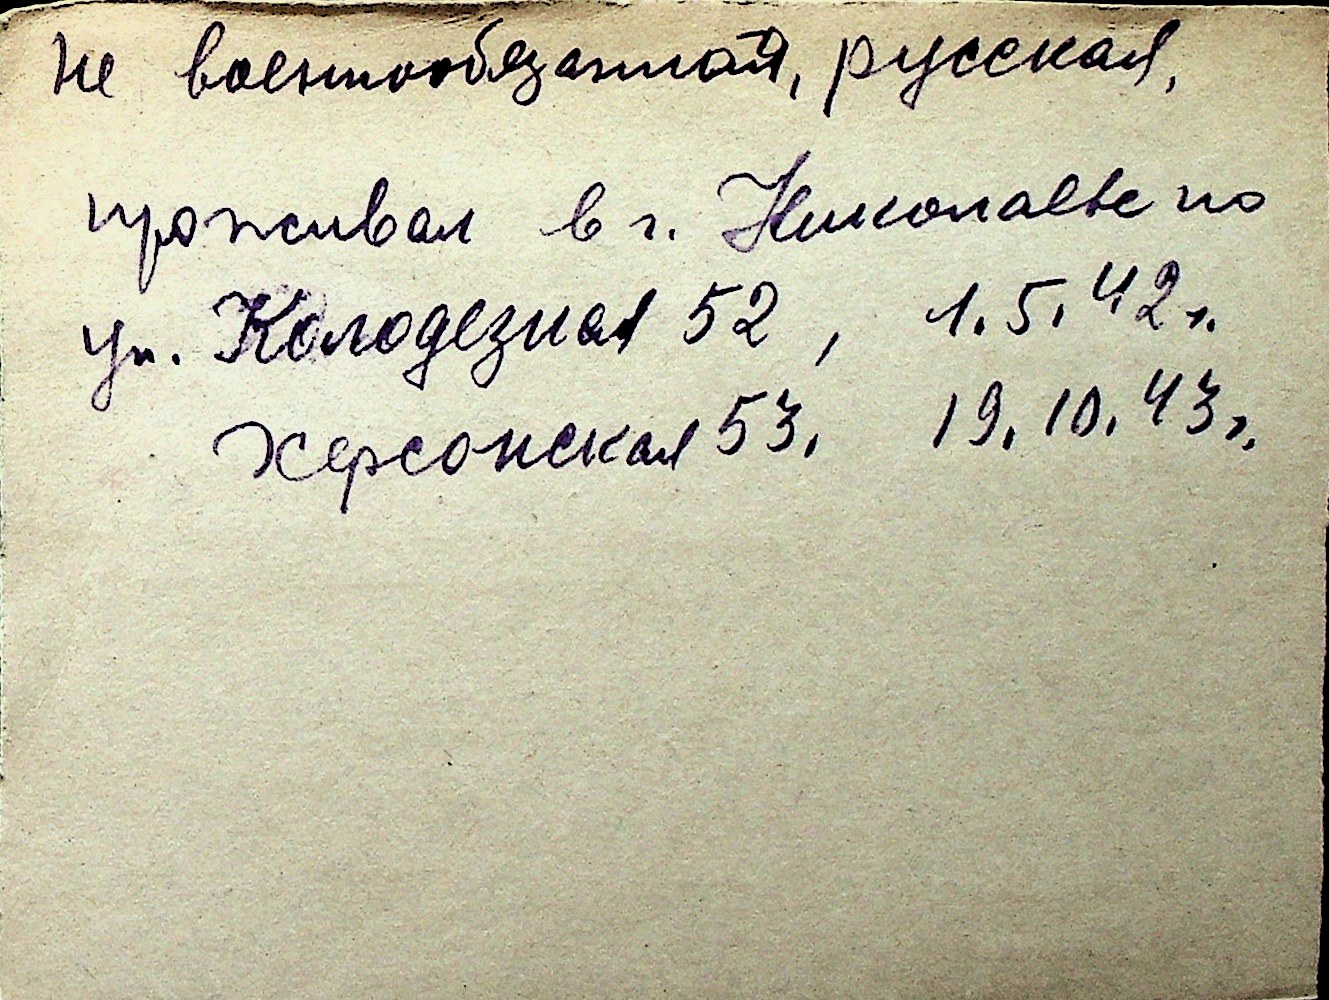 Не военнообязанная, русская,
проживал в г. Николаеве по
ул. Колодезная 52, 1.5.42 г.
Херсонская 53. 19.10.43 г.